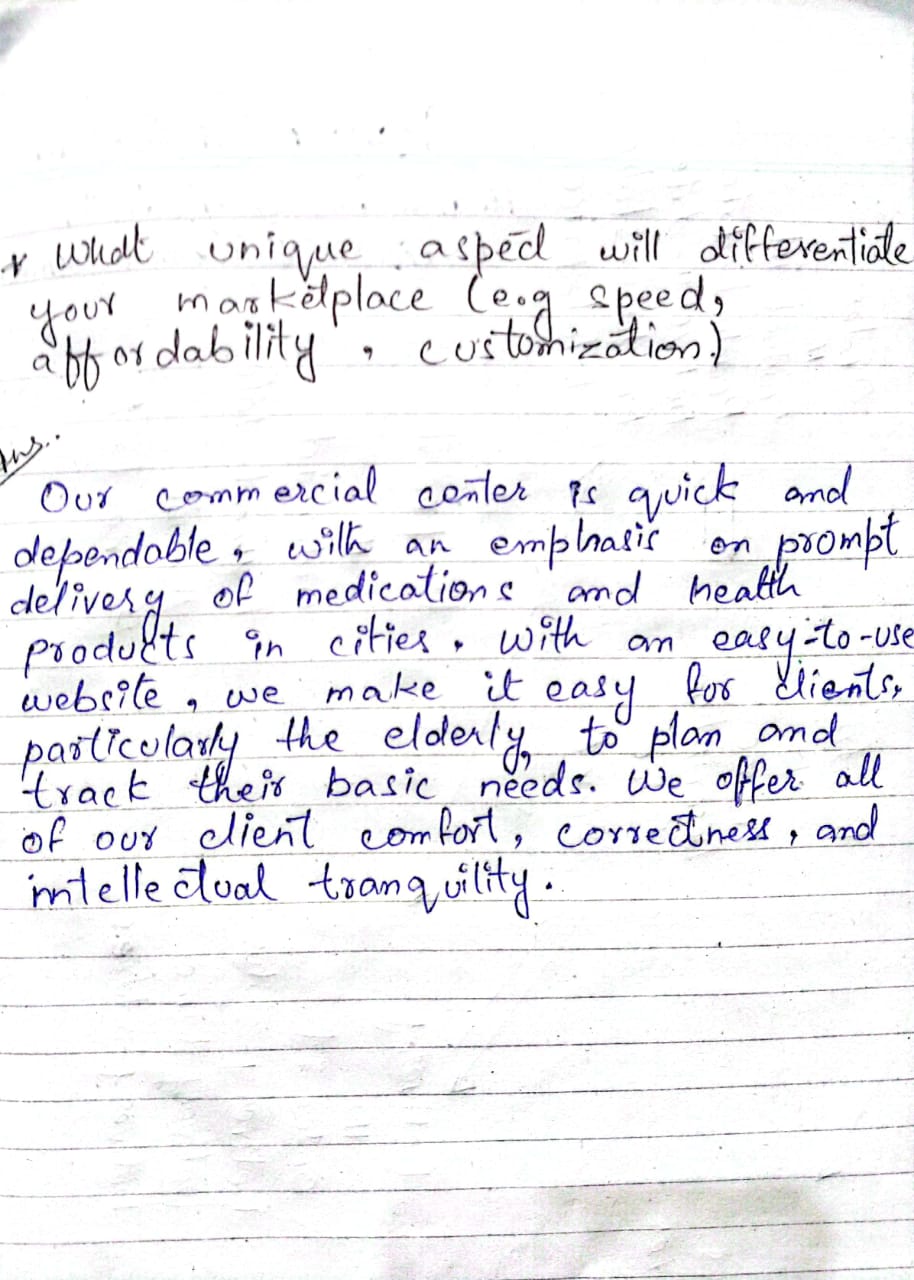 * What unique aspect will differentiate
your marketplace (e.g speed,
affordability, customization)
Ans..
Our commercial center is quick and
dependable, with an emphasis on prompt
delivery of medications and health
products in cities. With an easy-to-use
website, we make it easy for clients,
particularly the elderly, to plan and
track their basic needs. We offer all
of our client comfort, correctness, and
intellectual tranquility.